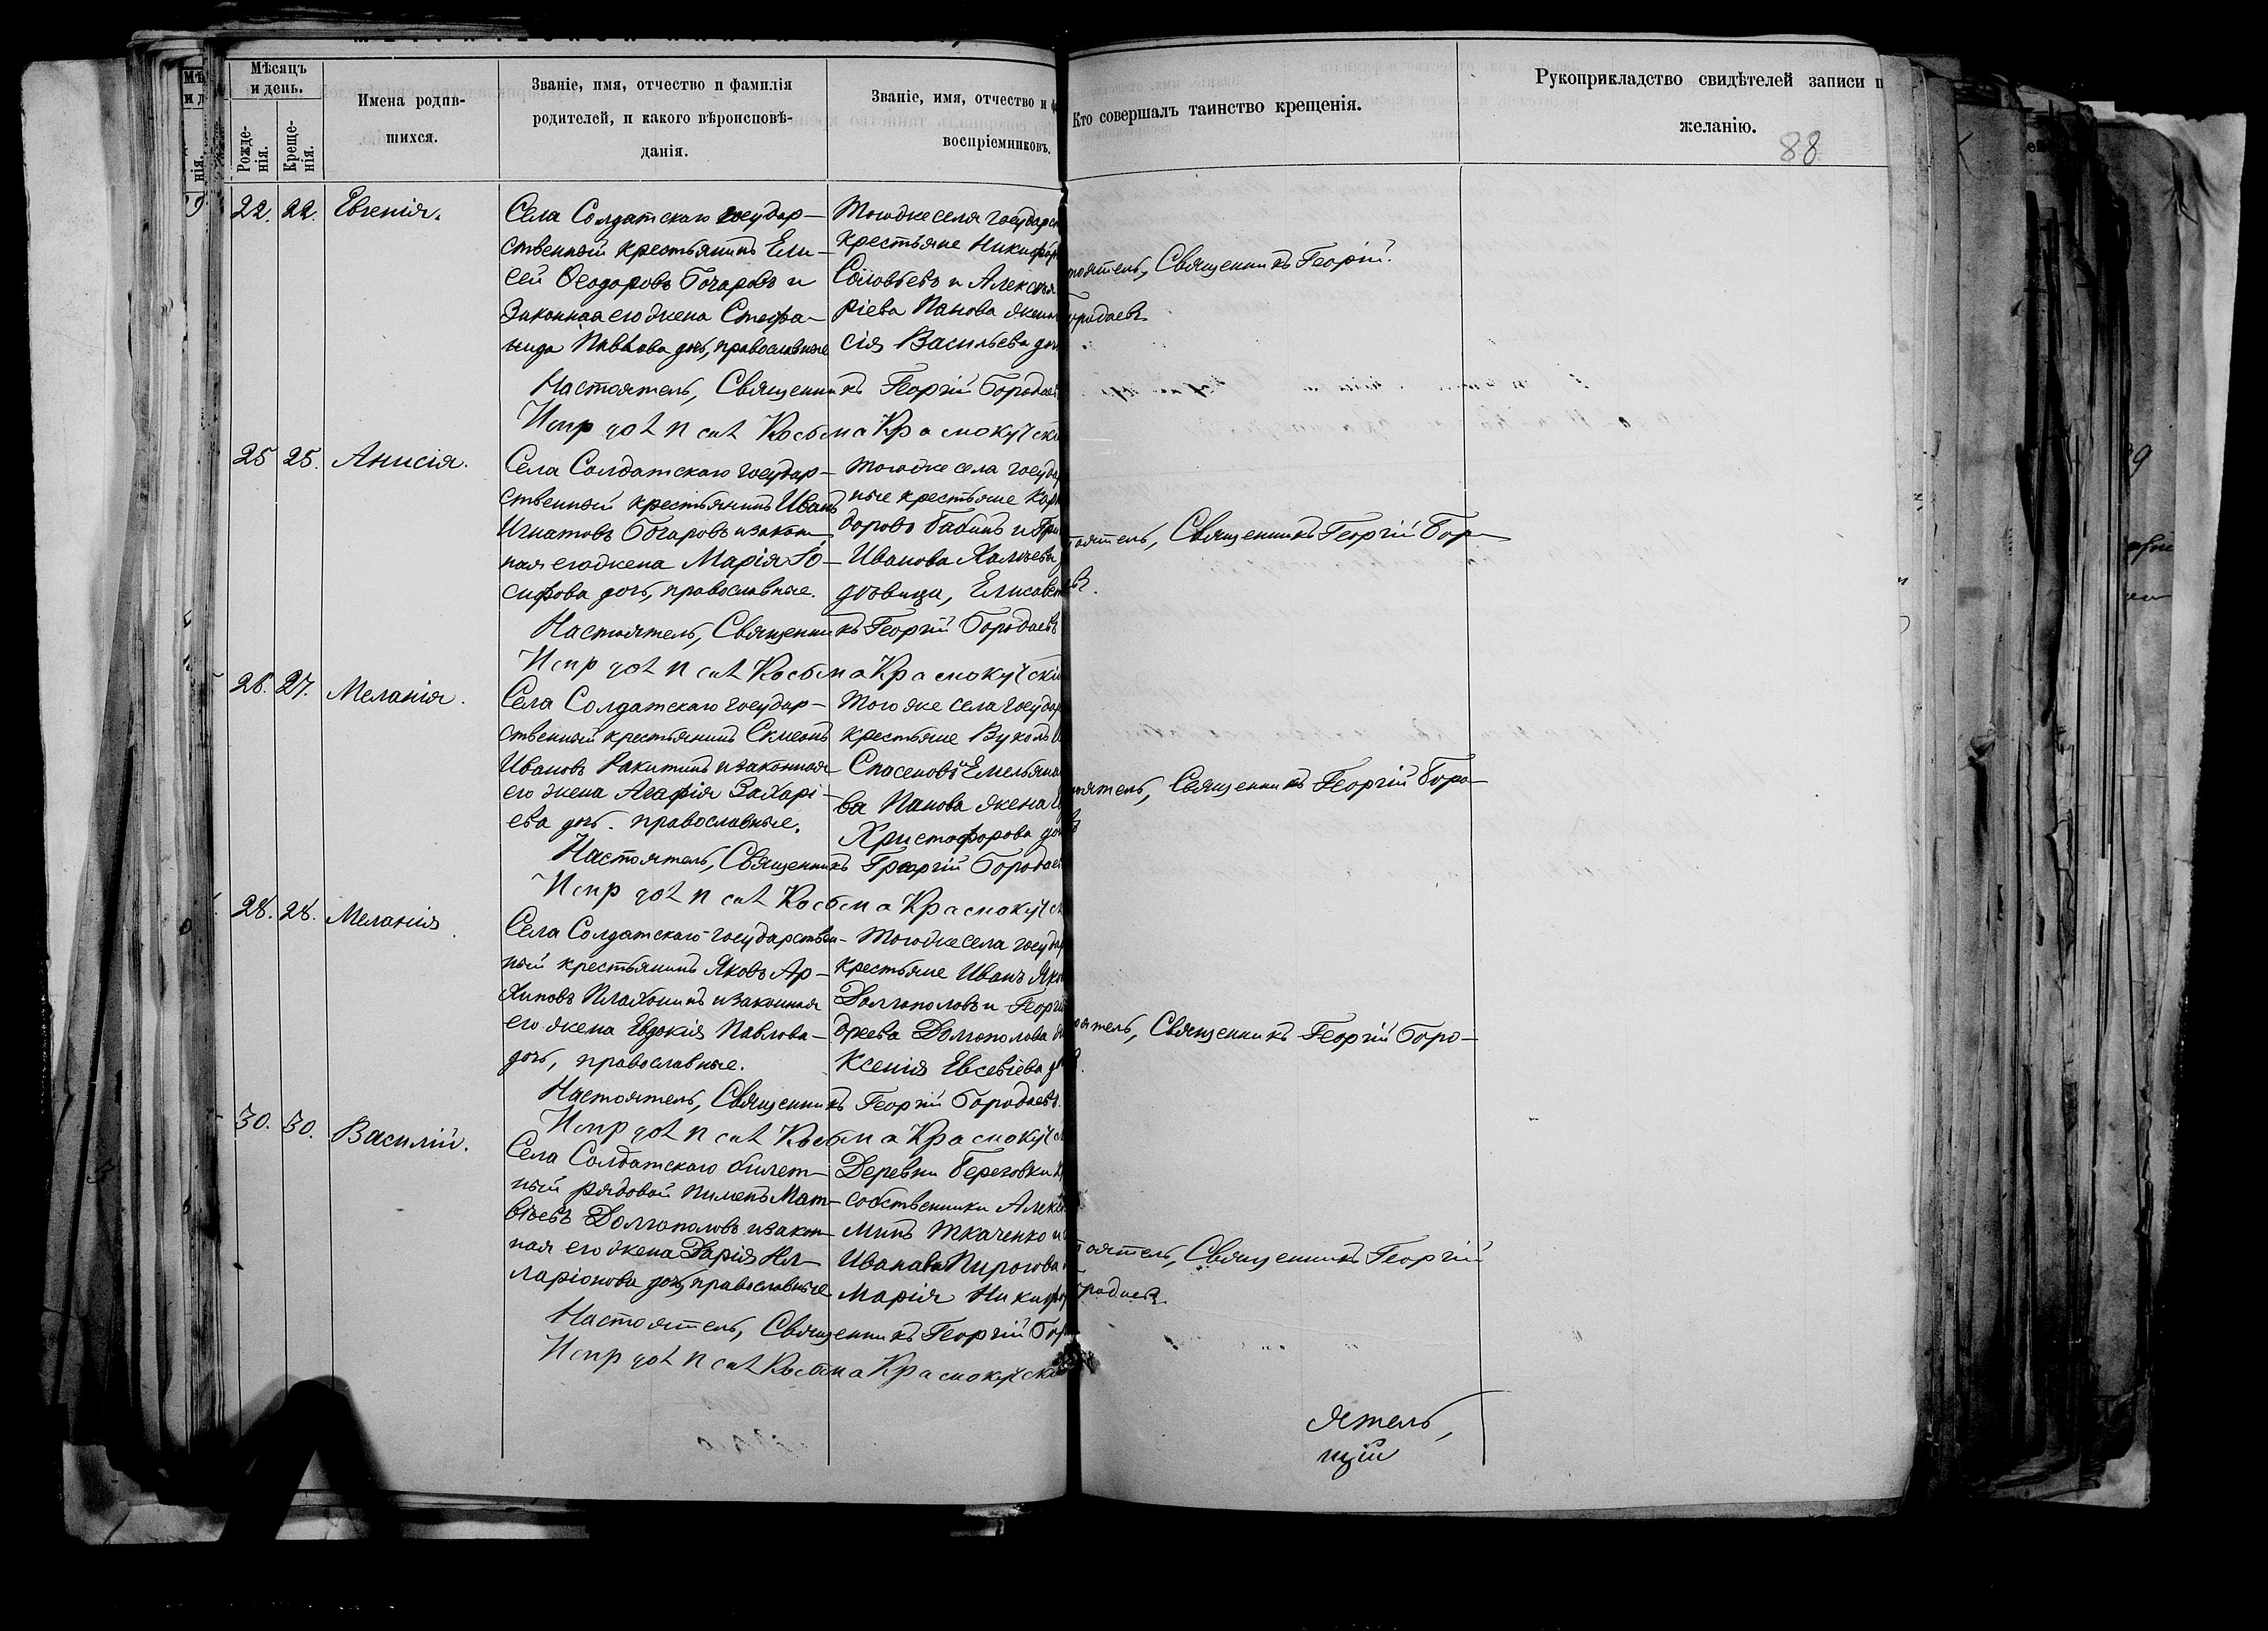 Мѣсяцъ
и день.
Рожде-
нія.
Креще-
нія.
Имена родив-
шихся.
Званіе, имя, отчество и фамилія
родителей, и какого вѣроисповѣ-
данія.
Званіе, имя, отчество и
воспріемниковъ.
Кто совершалъ таинство крещенія.
Рукоприкладство свидѣтелей записи
желанію.
88
22. 22. Евгенія.
Села Солдатскаго государ-
ственный крестьянинъ Ели-
сей Ѳеодоровъ Бочаровъ и
Законная его жена Стефа-
нида Павлова дочь, православные
Тогоже села государс
крестьяне Никифор
Соловьевъ и Алекс
ріева Панова жена
сія Васильева доч
тоятель, Священникъ Георгій.
Бородаевъ
Настоятель, Священникъ Георгій Бородаев
25 25. Анисія.
Села Солдатскаго государ-
ственный крестьянинъ Иванъ
Игнатовъ Бочаровъ и закон-
ная его жена Марія Іо-
сифова дочь, православные.
Тогоже села государ
ные крестьяне Кор
доровъ Бабинъ и Гри
Иванова
дѣвица, Елисавет
тоятель, Священникъ Георгій Бор-
Настоятель, Священникъ Георгій Бородаевъ
26. 27. Меланія.
Села Солдатскаго государ-
ственный крестьянинъ Симеонъ
Ивановъ Ракитинъ и законная
его жена Агафія Захарі-
ева дочь. православные.
Того же села государ
крестьяне Вуколъ
Спасеновъ Емельяна
ва Панова жена
Христофорова доч
тоятель, Священникъ Георгій Боро-
Настоятель, Священникъ Георгій Бородаев
28. 28. Меланія
Села Солдатскаго государствен-
ный крестьянинъ Яковъ Ар-
хиповъ Плахонинъ и законная
его жена Евдокія Павлова-
дочь, православные.
Тогоже села государ
крестьяне Иванъ Яко
Долгополовъ и Георгі
дреева Долгополова
Ксенія Евсевіева д
оятель, Священникъ Георгій Боро-
Настоятель, Священникъ Георгій Бородаевъ.
30. 30. Василій.
Села Солдатскаго билет-
ный рядовой Пименъ Мат-
вѣевъ Долгополовъ и закон-
ная его жена Дарія Ил-
ларіонова дочь, православные
Деревни Береговки
собственники Алекс
минъ Ткаченко и
Иванова Пирогова
Марія Никифо
тоятель, Священникъ Георгій
родаевъ
Настоятель, Священникъ Георгій Бор
ятель,
щій